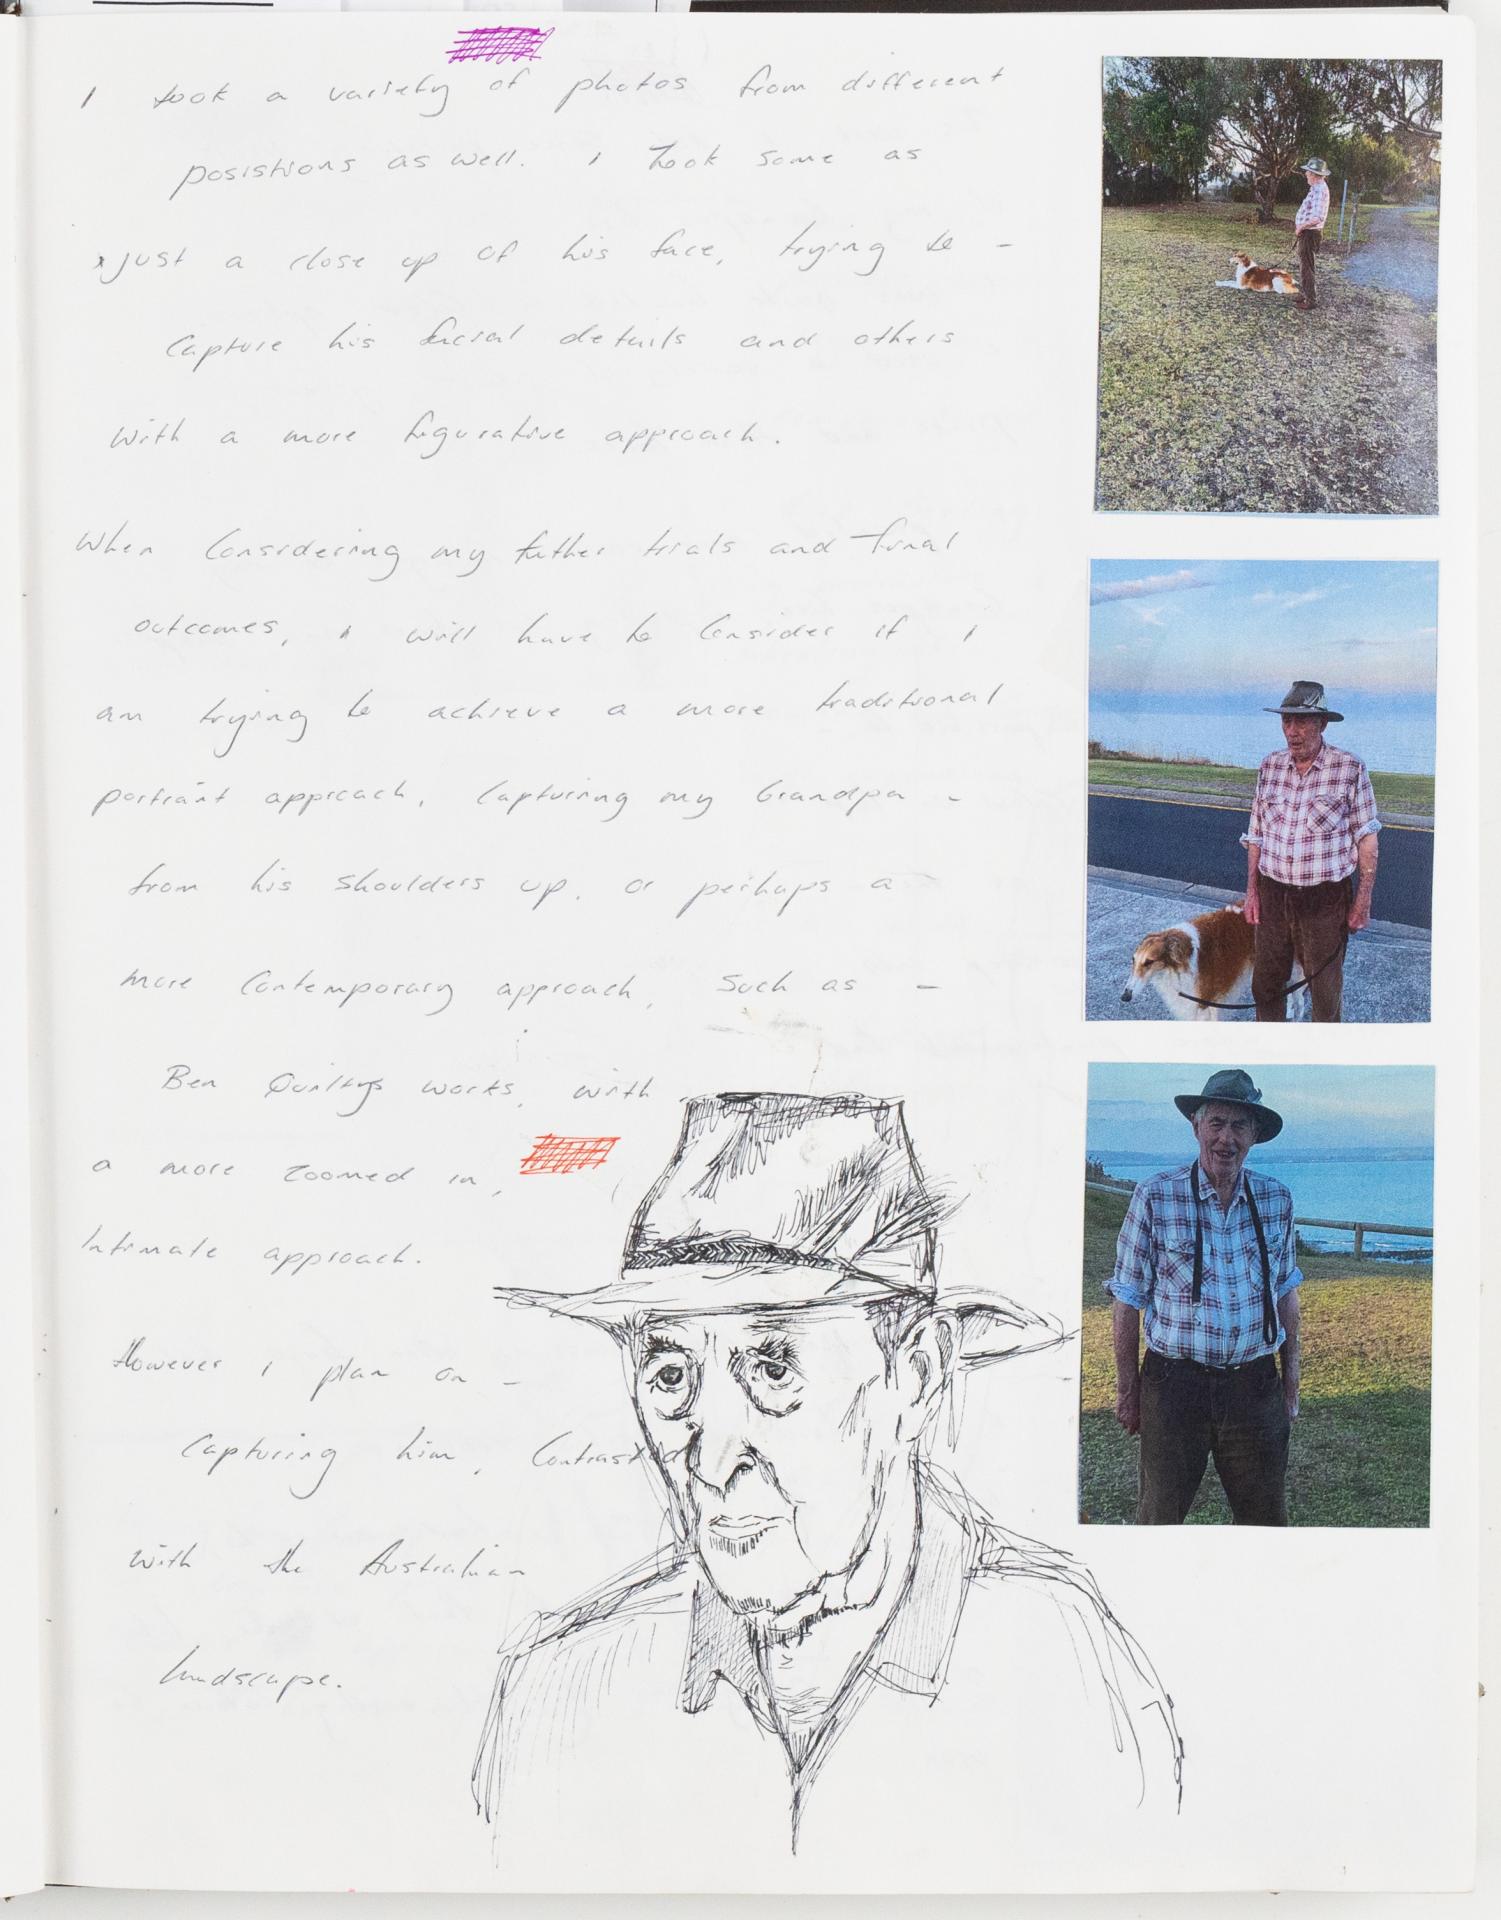 I took a variety of photos from different
posistions as well. I took some as
just a close up of his face, trying to -
Capture his facial details and others
with a more figurative approach.
When Considering my futher trials and final
outcomes, I will have to Consider if I
am trying to achieve a more traditional
portrait approach, Capturing my Grandpa -
from his shoulders up, or perhaps a
more Contemporary approach, Such as -
Ben Quiltys works, with
a more zoomed in,
Intimate approach.
However I plan on -
Capturing him, Contrasted
with the Australian
landscape.